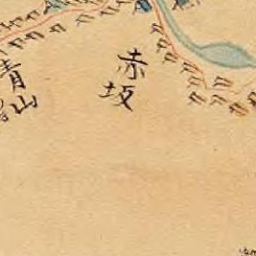 赤坂
青山